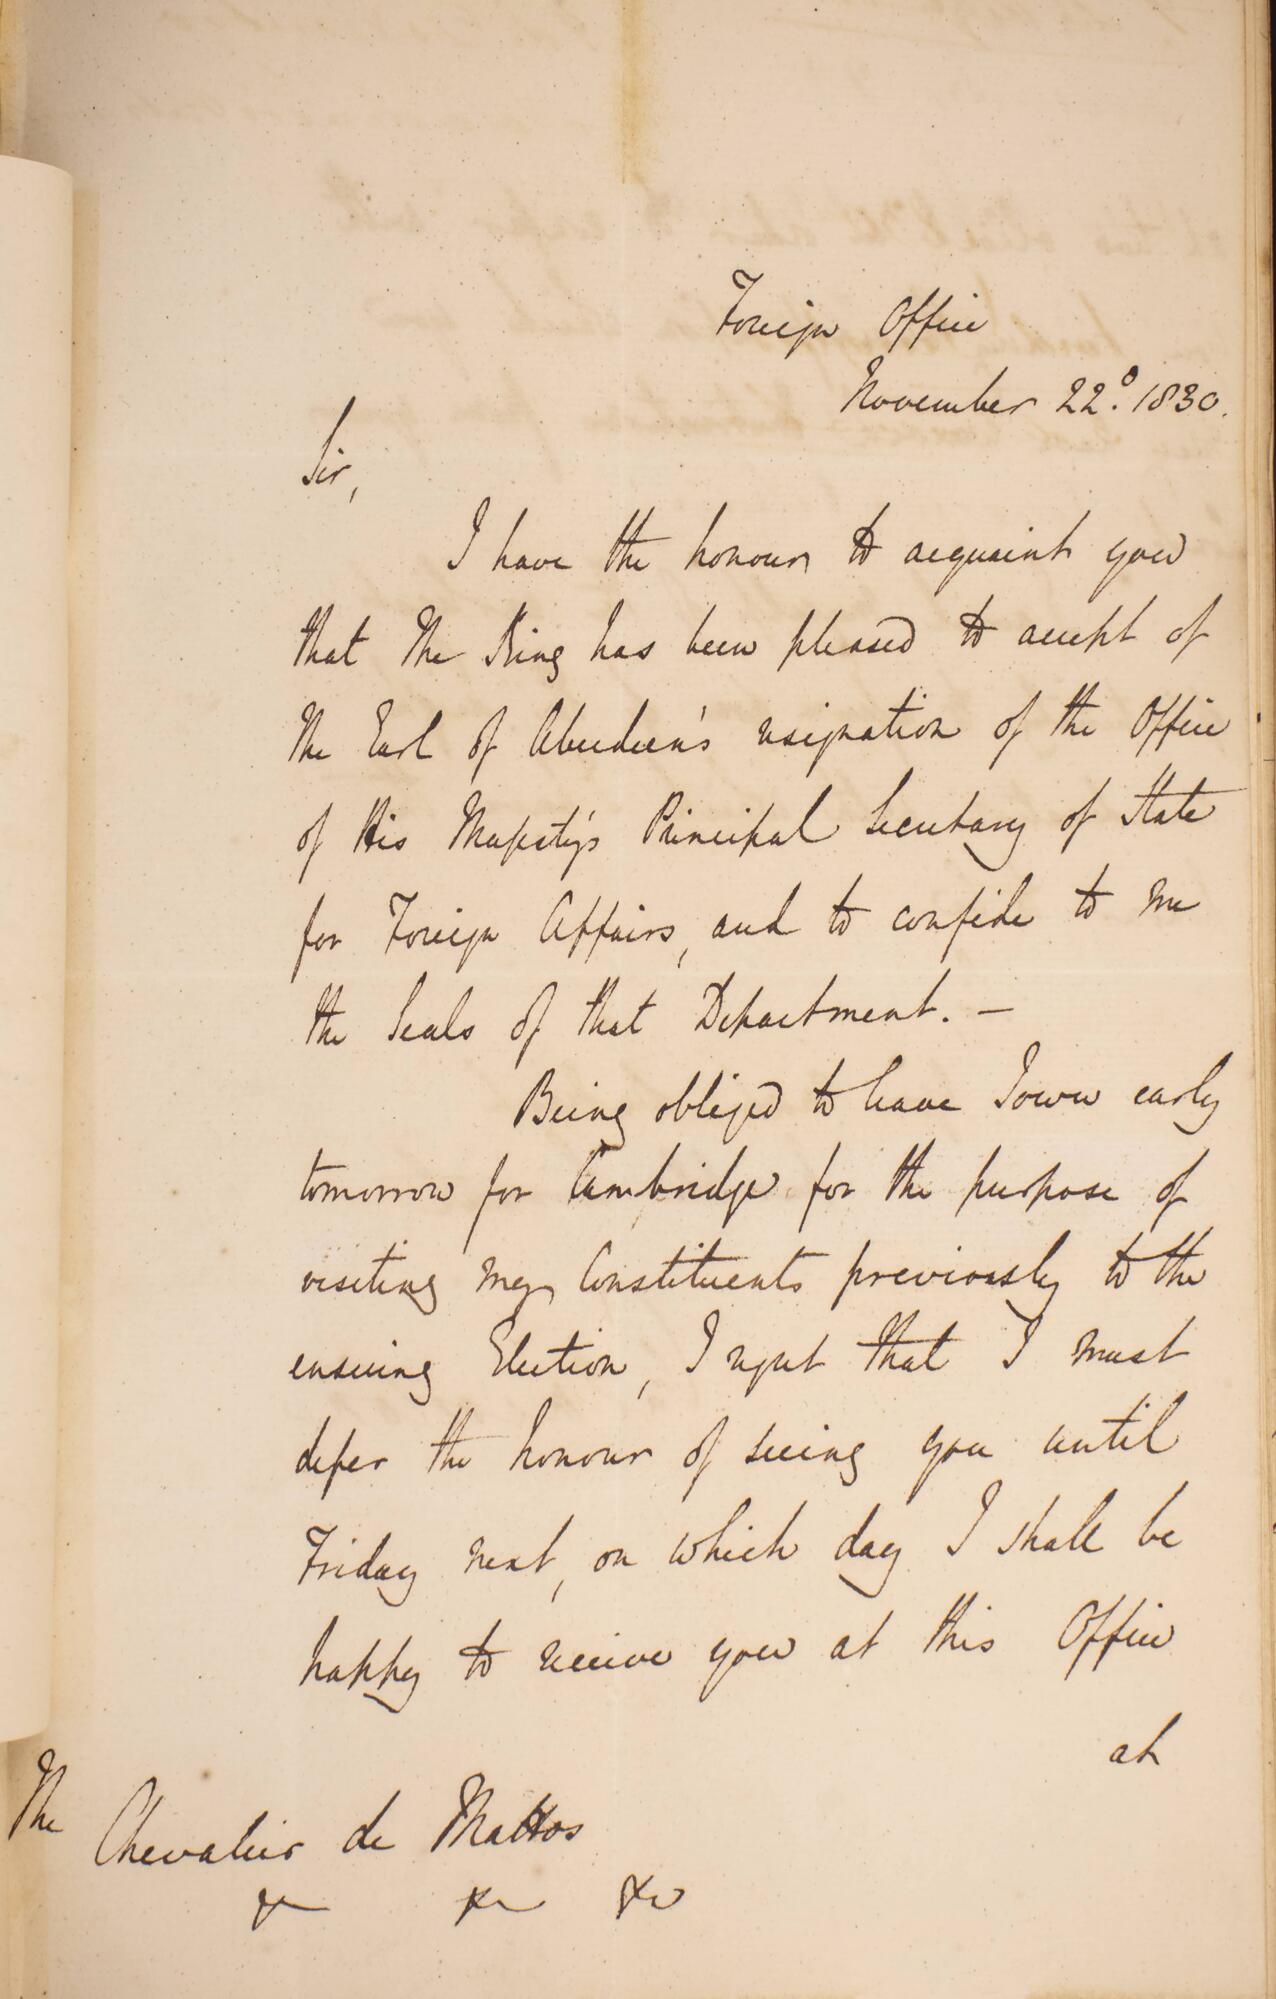 Foreign Office
November 22º. 1830.
Sir,
I have the honour to acquaint you
that The King has been pleased to accept of
the Earl of Aberdeen's resignation of the Office
of His Majesty's Principal Secretary of State
for Foreign Affairs, and to confide to me
the Seals of that Department. —
Being obliged to leave Town early
tomorrow for Cambridge for the purpose of
visiting my Constituents previously to the
ensuing Election, I regret that I must
defer the honour of seeing you until
Friday next, on which day I shall be
happy to receive you at this Office
at
The Chevalier de Mattos
&c &c &c